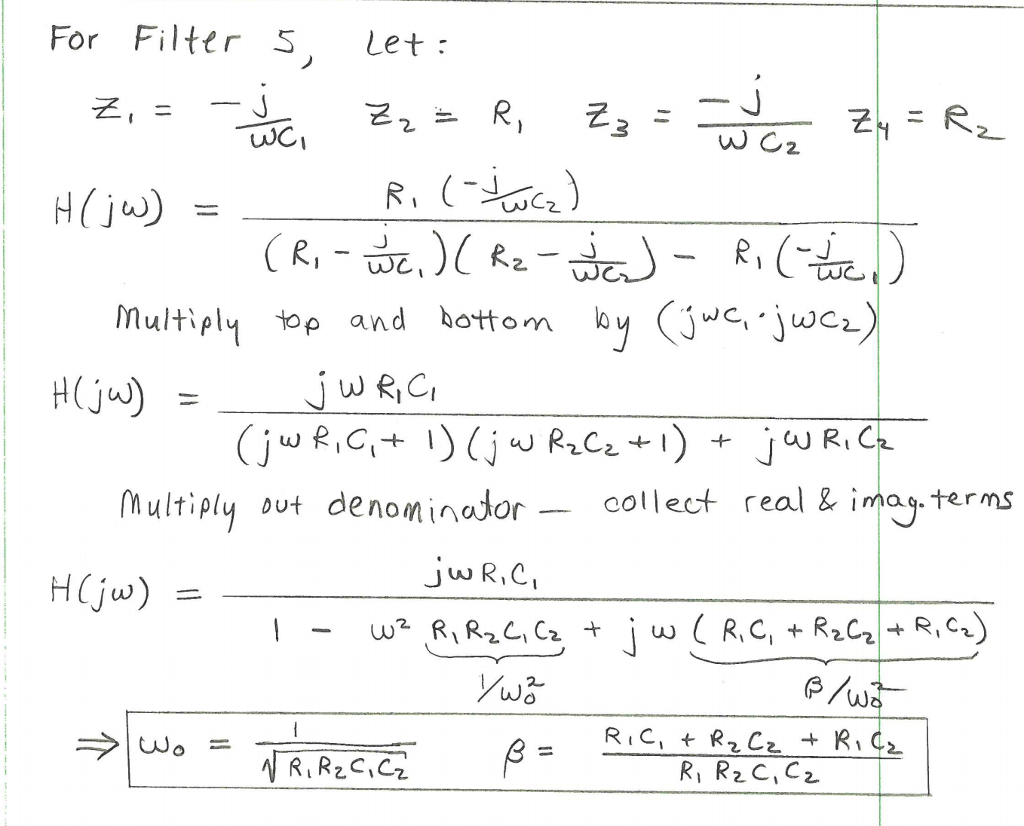 For Filter 5, Let:
Z₁ = -j/ωC₁ Z₂ = R₁ Z₃ = -j/ωC₂ Z₄ = R₂
H(jω) = R₁(-j/ωC₂) / (R₁ - j/ωC₁)(R₂ - j/ωC₂) - R₁(-j/ωC₁)
Multiply top and bottom by (jωC₁·jωC₂)
H(jω) = jωR₁C₁ / (jωR₁C₁ + 1)(jωR₂C₂ + 1) + jωR₁C₂
Multiply out denominator — collect real & imag. terms
H(jω) = jωR₁C₁ / 1 - ω² R₁R₂C₁C₂ + jω(R₁C₁ + R₂C₂ + R₁C₂)
1/ω₀² β/ω₀²
⇒ ω₀ = 1/√R₁R₂C₁C₂ β = R₁C₁ + R₂C₂ + R₁C₂ / R₁R₂C₁C₂